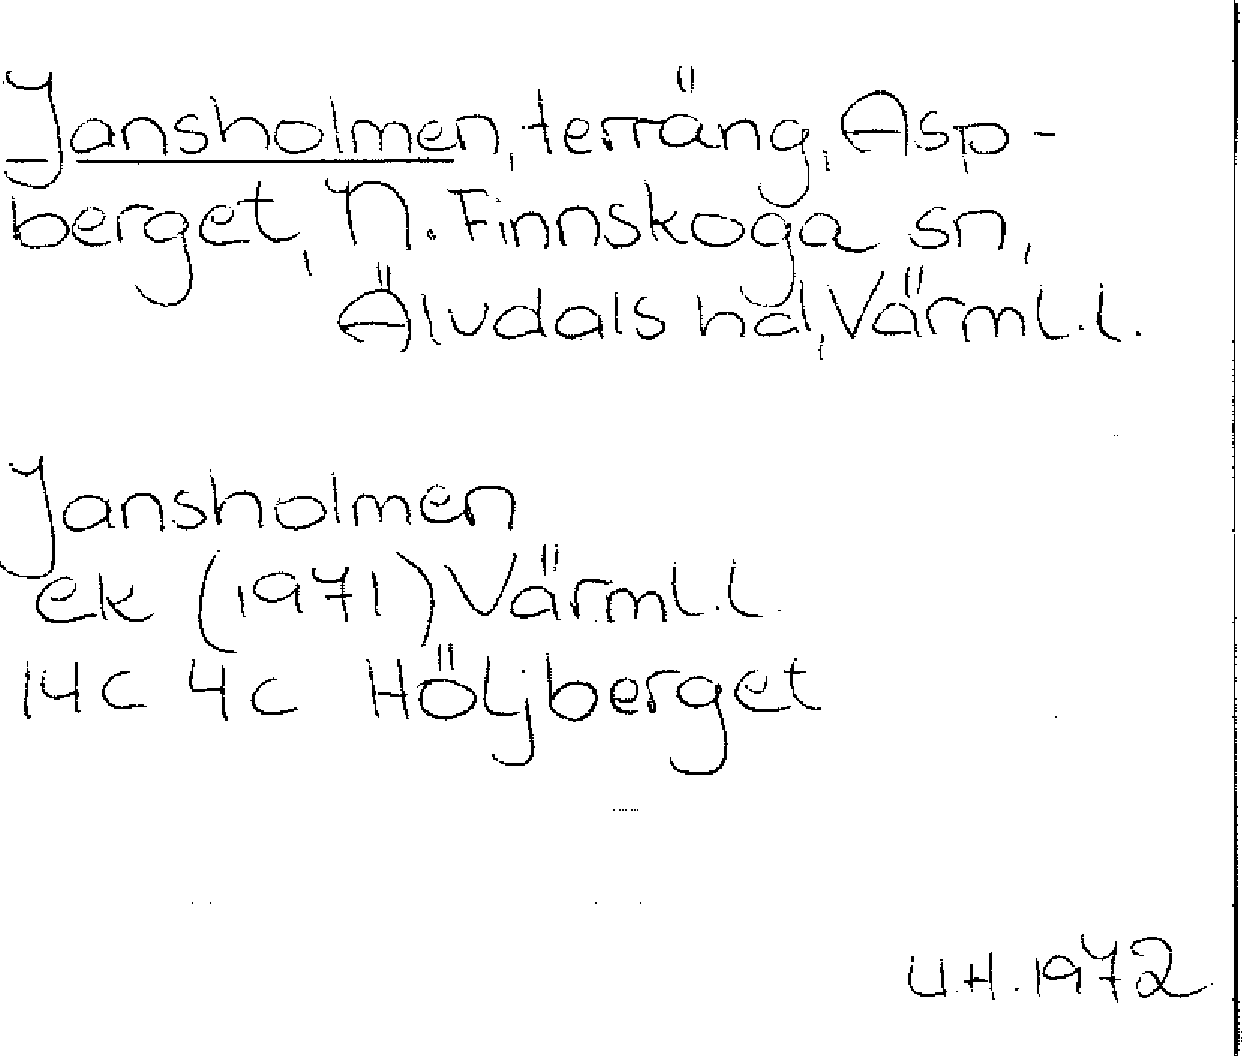 Jansholmen, terräng, Asp-
berget, N. Finnskoga sn,
Älvdals hd, Värml.l.
Jansholmen
ek (1971) Värml.l.
14c 4c Höljberget
U.H. 1972